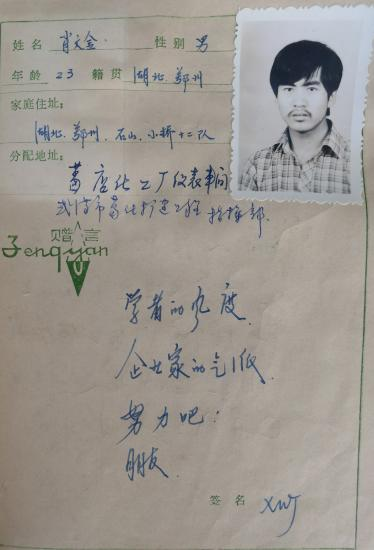 姓名 肖文金 性别 男
年龄 23 籍贯 湖北 鄂州
家庭住址：
湖北. 鄂州. 石山. 小桥十二队
分配地址：
葛店化工厂仪表车间
武汉市葛化扩建工程 指挥部.
赠言
Zengyan
学者的风度
企业家的气低
努力吧！
朋友
签名 XWJ